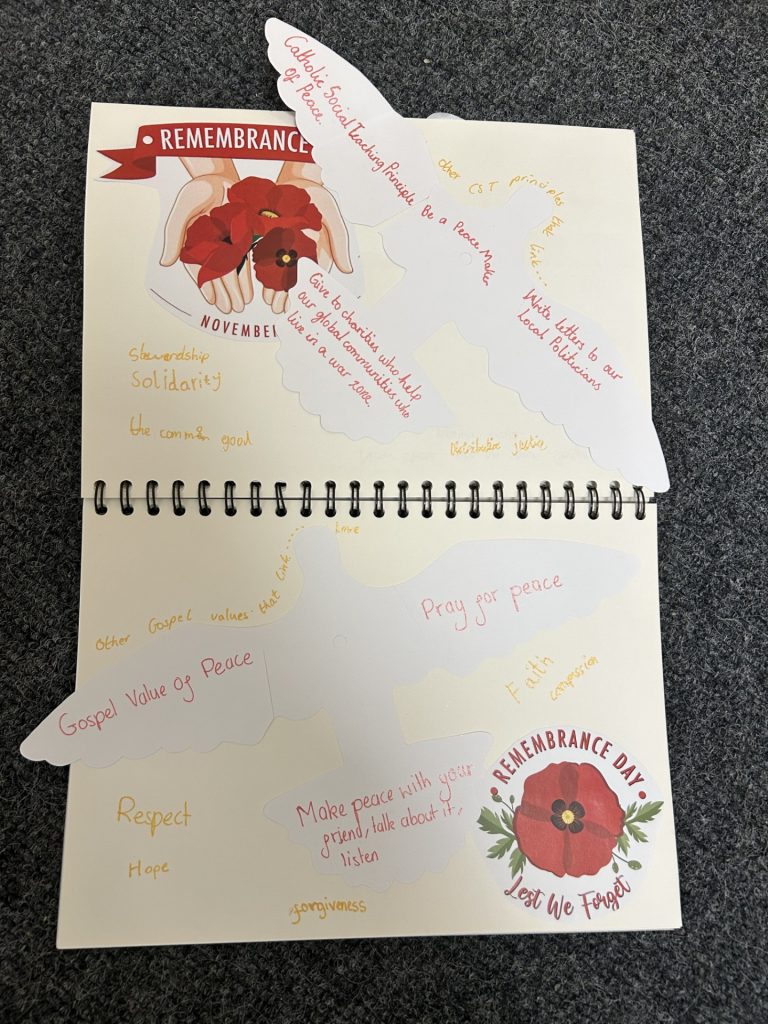 REMEMBRANCE
NOVEMBER
Catholic Social Teaching Principle 'Be a Peace Maker
of Peace.
other CST principles that link...
Give to charities who help
our global communities who
live in a war zone.
Write letters to our
Local Politicians
Stewardship
Solidarity
the common good
Distributive justice
love
Other Gospel values that link...
Pray for peace
Gospel Value of Peace
Faith
compassion
Make peace with your
friend, talk about it,
listen
Respect
Hope
forgiveness
REMEMBRANCE DAY
Lest We Forget